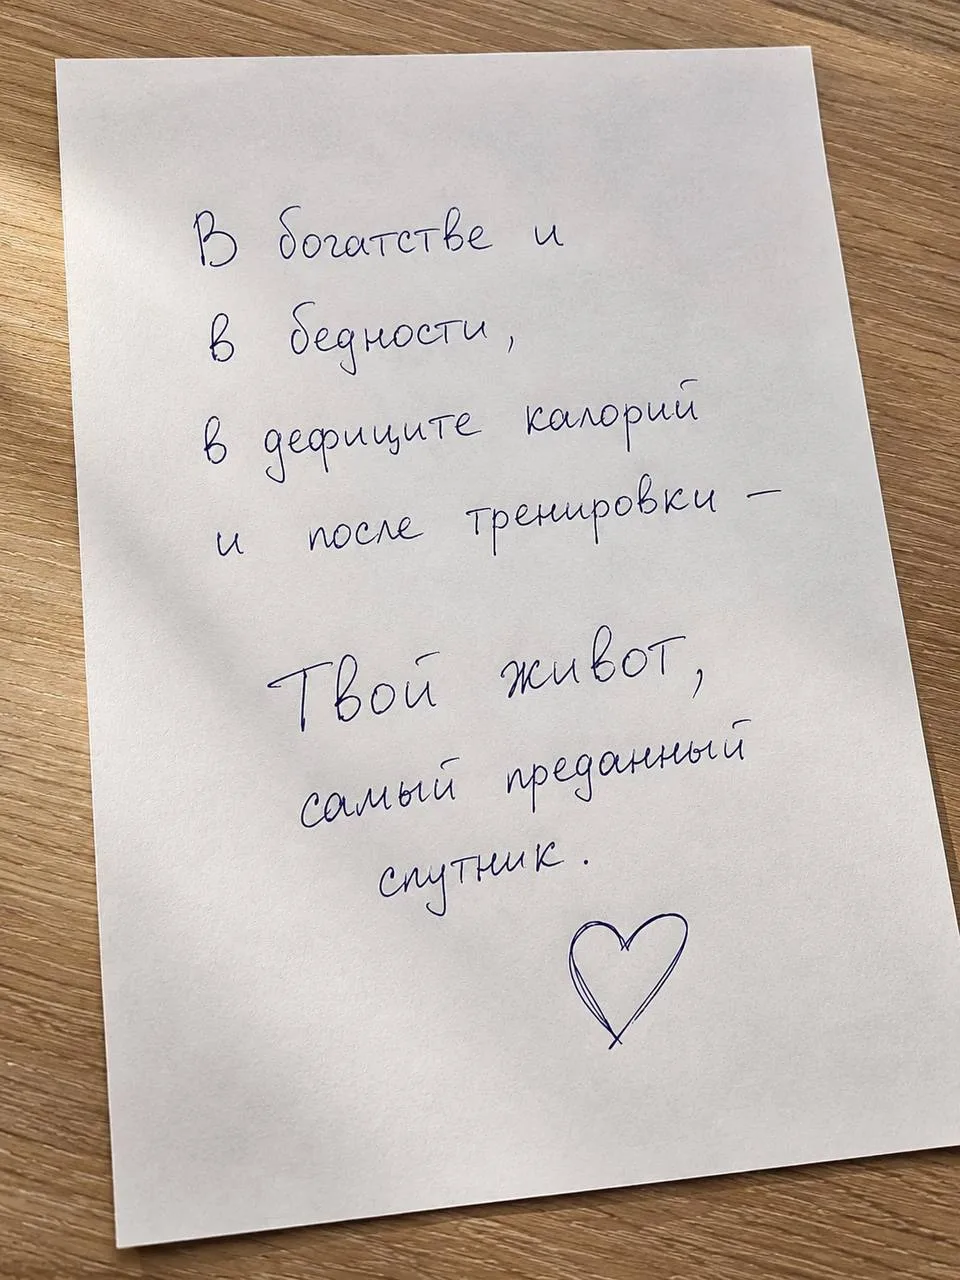 В богатстве и
в бедности,
в дефиците калорий
и после тренировки —
Твой живот,
самый преданный
спутник.